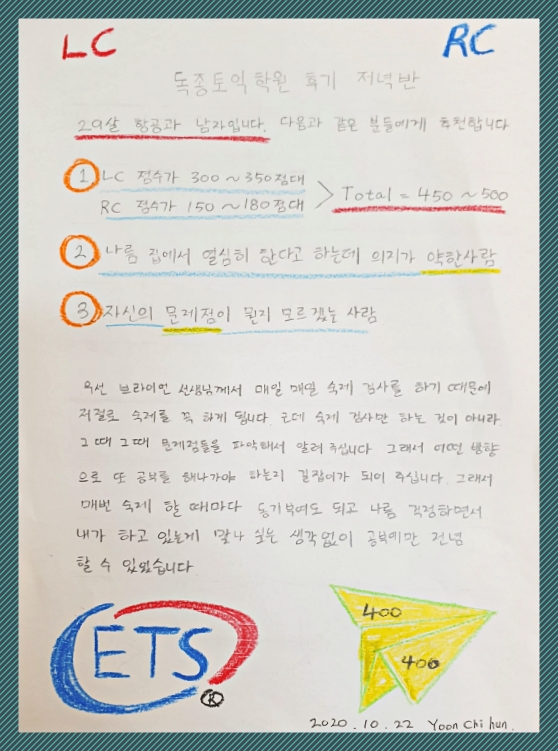 LC RC
독종토익학원 후기 저녁반
29살 항공과 남자입니다. 다음과 같은 분들에게 추천합니다
1 LC 점수가 300~350점대
RC 점수가 150~180점대 > Total = 450~500
2 나름 집에서 열심히 한다고 하는데 의지가 약한사람
3 자신의 문제점이 뭔지 모르겠는 사람
우선 브라이언 선생님께서 매일 매일 숙제 검사를 하기 때문에
저절로 숙제를 꼭 하게 됩니다. 근데 숙제 검사만 하는 것이 아니라
그때 그때 문제점들을 파악해서 알려 주십니다 그래서 어떤 방향
으로 또 공부를 해나가야 하는지 길잡이가 되어 주십니다. 그래서
매번 숙제 할 때마다 동기부여도 되고 나름 걱정하면서
내가 하고 있는게 맞나 싶은 생각없이 공부에만 전념
할 수 있었습니다
ETS ®
400
400
2020.10.22 Yoon Chi hun.